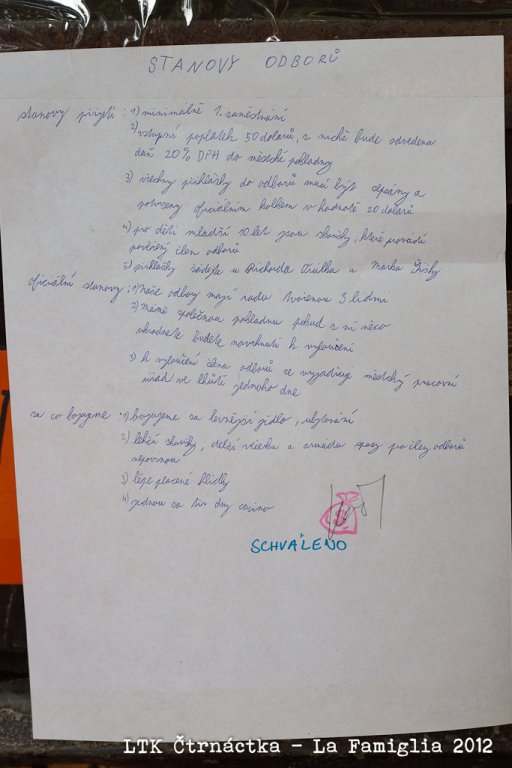 STANOVY ODBORŮ
stanovy přijetí: 1) minimálně 1. zaměstnání
2) vstupní poplatek 50 dolarů, z nichž bude odvedena
daň 20% DPH do městské pokladny
3) všechny přihlášky do odborů musí být sepsány a
potvrzeny oficiálním kolkem v hodnotě 20 dolarů
4) pro děti mladší 10 let jsou zkoušky, které provádí
pověřený člen odborů
5) přihlášky zadejte u Richarda a Marka
oficiální stanovy: 1) Naše odbory mají radu tvořenou 3 lidmi
2) máme společnou pokladnu pokud z ní něco
ukradnete budete navrhnuti k vyloučení
3) k vyloučení člena odborů se vyjadřuje městský pracovní
úřad ve lhůtě jednoho dne
za co bojujeme: 1) bojujeme za levnější jídlo, ubytování
2) lehčí zkoušky, delší večerku a armádu pro členy odborů
nepovinnou
3) lépe placené hlídky
4) jednou za tři dny casino
SCHVÁLENO
LTK Čtrnáctka - La Famiglia 2012